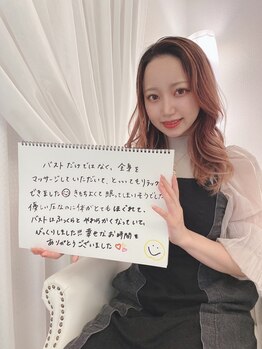 バストだけでなく、全身を
マッサージしていただいて、とってもリラックス
できました☺ きもちよくて眠ってしまいそうでした
優しい圧なのに体がとてもほぐれて、
バストはふっくらとやわらかくなっていて、
びっくりしました!! 幸せなお時間を
ありがとうございました